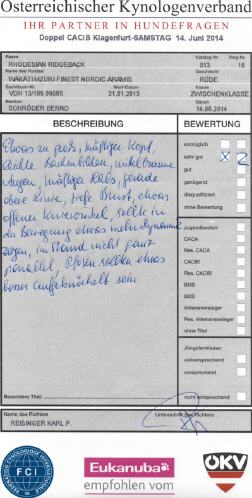 Österreichischer Kynologenverband
IHR PARTNER IN HUNDEFRAGEN
Doppel CACIB Klagenfurt-SAMSTAG 14. Juni 2014
Rasse
Katalog-Nr.
Ring-Nr.
RHODESIAN RIDGEBACK
813
18
Name des Hundes
Geschlecht
WAKATI-MZURI FINEST NORDIC ARAMIS
RÜDE
Zuchtbuch-Nr.
Wurf-Datum
Klasse
VDR 13/109 09505
21.01.2013
ZWISCHENKLASSE
Besitzer
SCHRÖDER BERND
14.06.2014
BESCHREIBUNG
BEWERTUNG
Etwas zu groß, kräftiger Kopf,
leichte Backenbilden, mittelbraune
Augen, kräftiger Hals, gerade
obere Linie, tiefe Brust, etwas
offener Kniewinkel, sollte in
der Bewegung etwas mehr Dynamik
zeigen, im Stand nicht ganz
parallel Pfoten sollten etwas
besser aufgeknöchelt sein
vorzüglich
sehr gut X 2
gut
genügend
disqualifiziert
ohne Bewertung
Jugendbester
CACA
Res. CACA
CACIB
Res. CACIB
BOB
BOS
Veteranensieger
Res. Veteranensieger
ohne Titel
Jüngstenklasse:
vielversprechend
versprechend
nicht entsprechend
Besonderer Titel
Name des Richters
Unterschrift des Richters
REISINGER KARL P.
FCI
Eukanuba
empfohlen vom
ÖKV